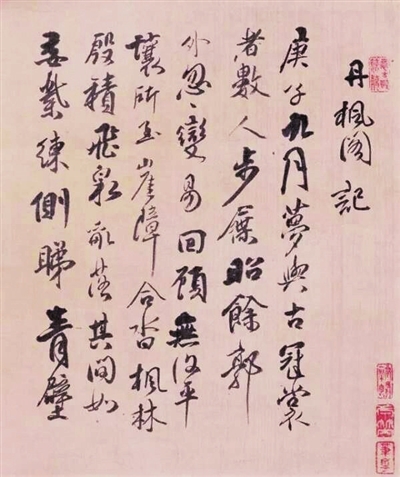 丹楓閣記
庚子九月夢與古冠裳
者數人步屧昭餘郭
外忽〻變易回顧無復平
壤所至崖障合沓楓林
殷積飛彩亂落其間如
練側睇青壁